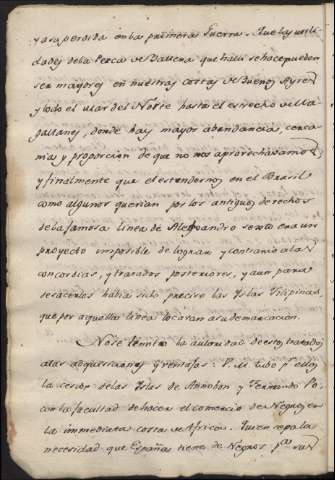 y asu perdida enlas primeras Guerras. Que las utili
dades dela Pesca de Ballena que halli se hace pueden
ser mayores en nuestras costas de Buenos Ayres
y todo el mar del Norte hasta el estrecho de Ma
gallanes, donde hay mayor abundancia, cerca
nias y proporcion de que no nos aprovechavamos
y finalmente que el estendernos en el Brasil
como algunos querian por los antiguos derechos
dela famosa linea de Alejandro sexto era un
proyecto imposible de lograr y contrario alas
concordias, y tratados posteriores, y aun para
sacarlos havia sido preciso las Islas Filipinas
que por aquella linea tocaran a su demarcacion.
No se limitó la autoridad de estos tratados
alas adquisiciones y ventajas: P. M. tubo p.r ellos
la cesion delas Islas de Annobon y Fernando Po,
con la facultad de hacer el comercio de Negros en
la inmediata costa de Africa. Quien sepa la
necesidad que España tiene de Negros p.a sus